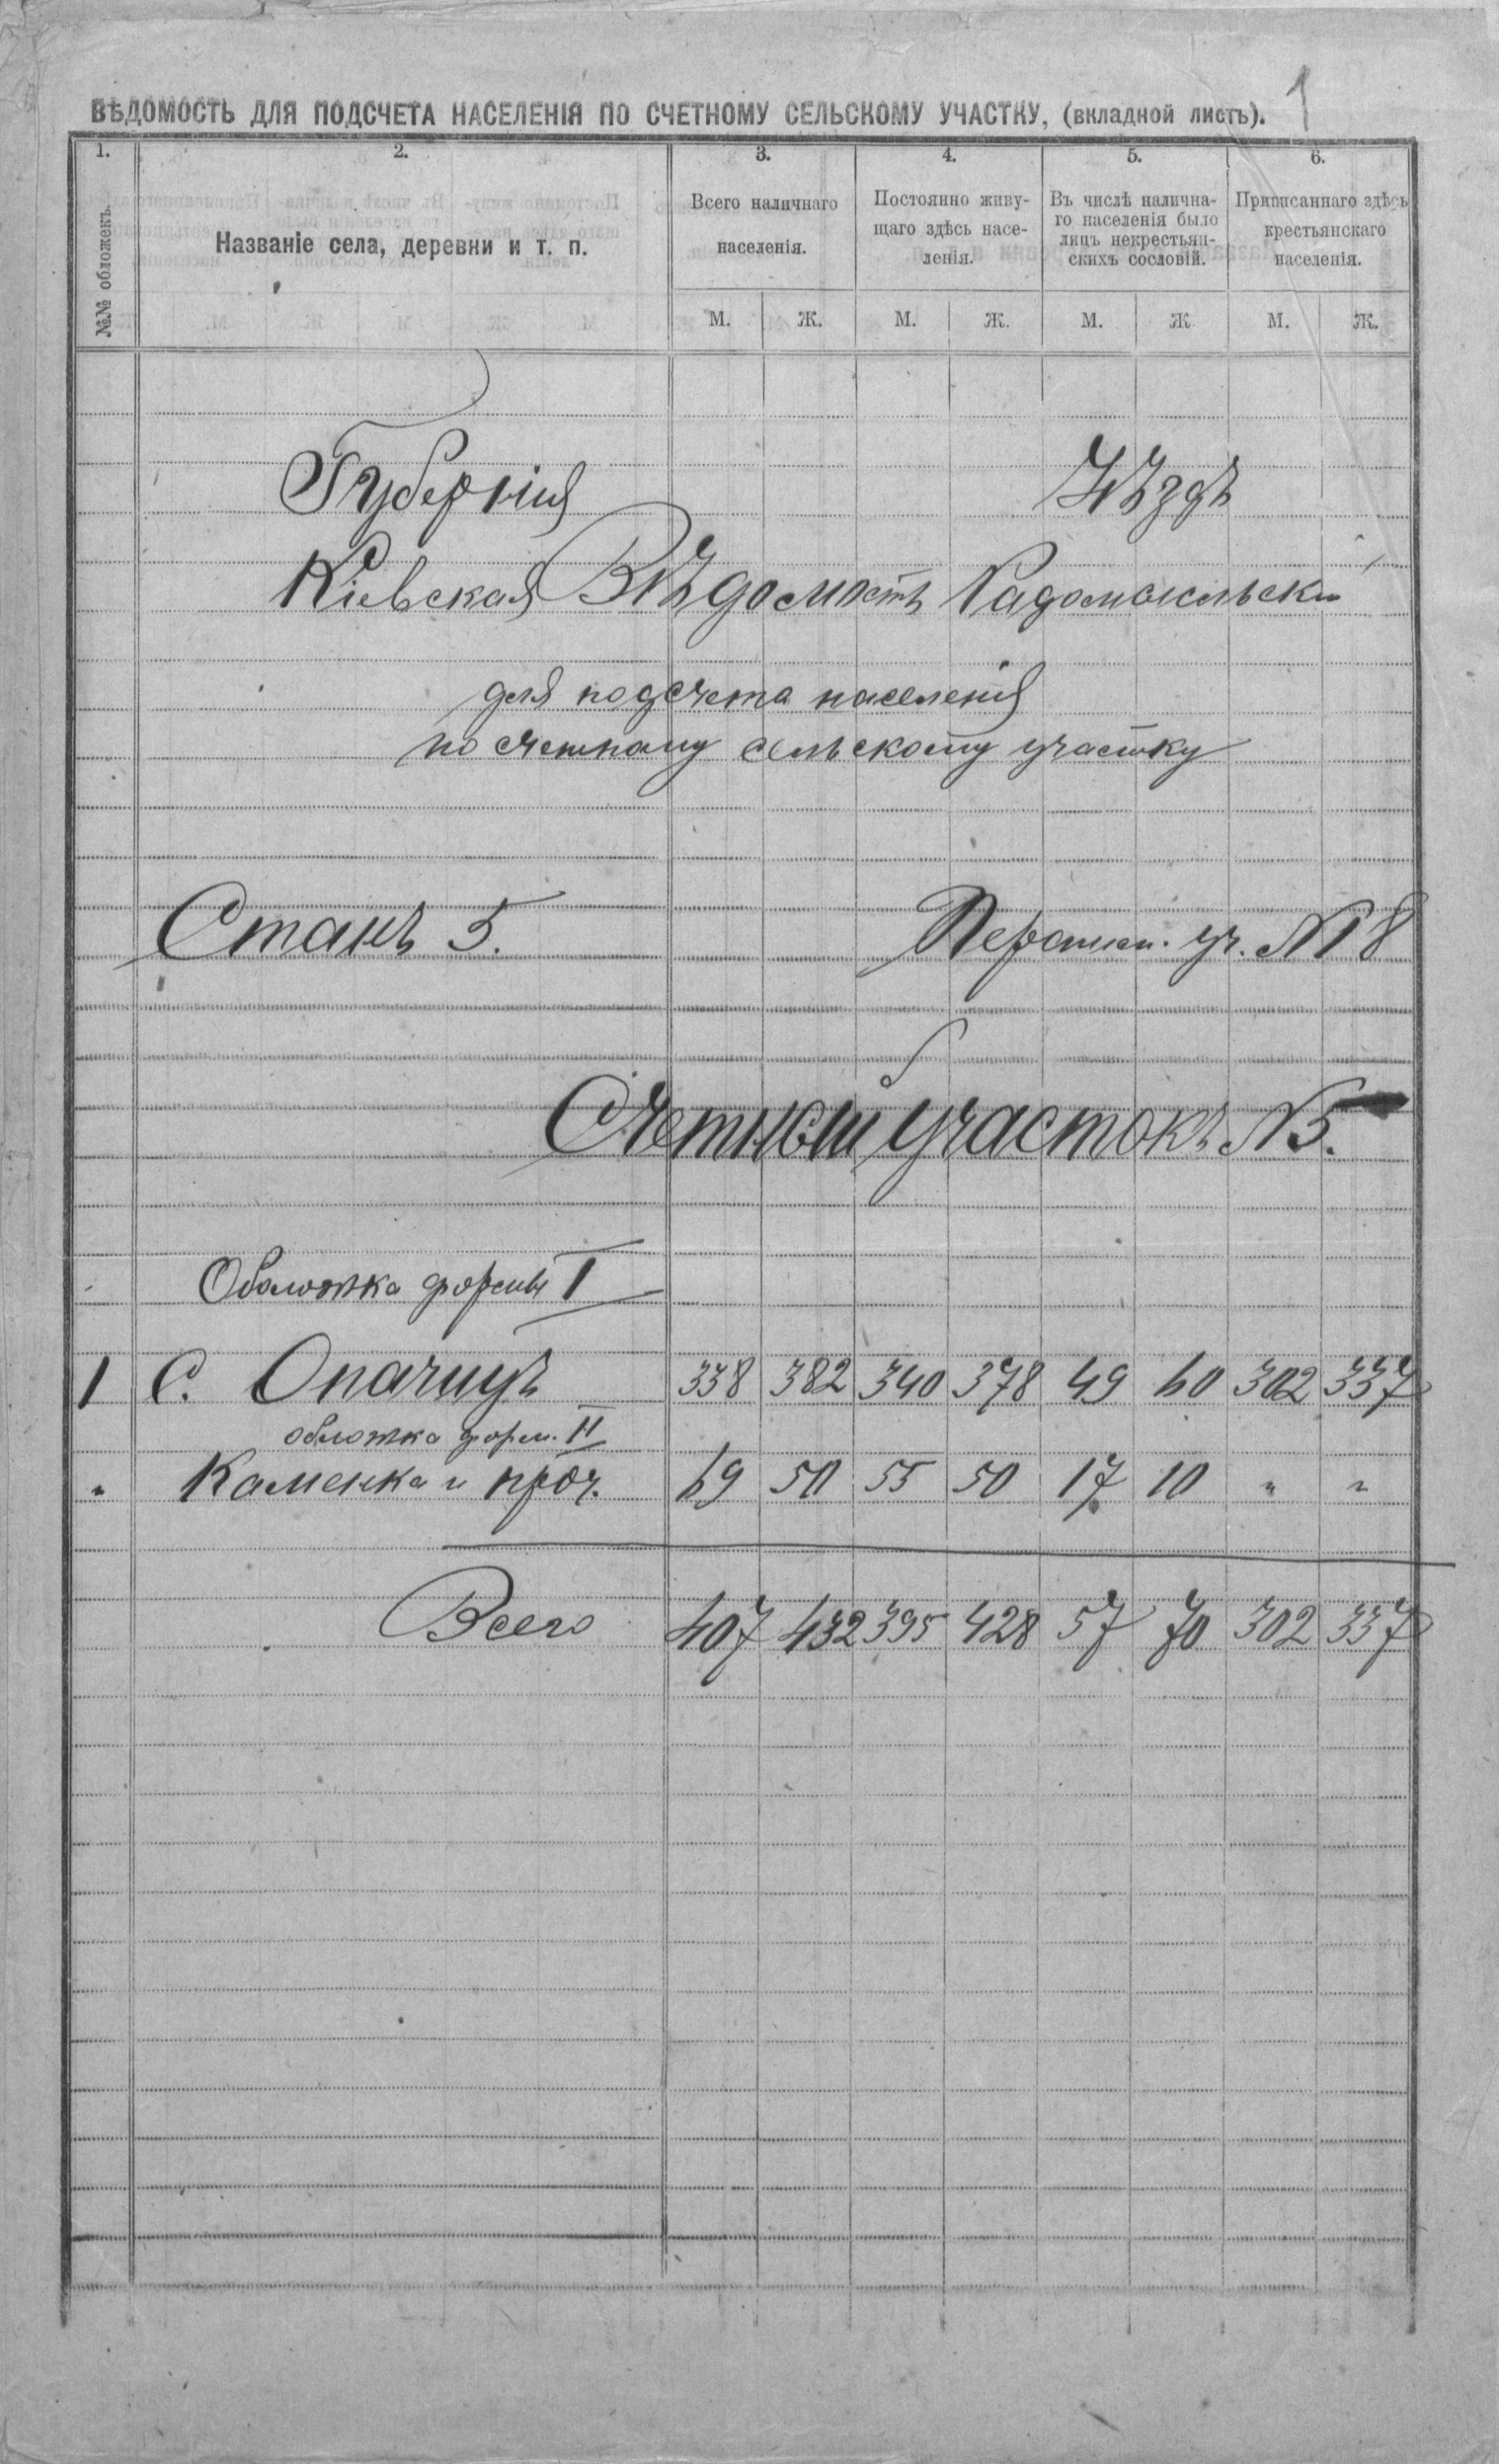 ВѢДОМОСТЬ ДЛЯ ПОДСЧЕТА НАСЕЛЕНІЯ ПО СЧЕТНОМУ СЕЛЬСКОМУ УЧАСТКУ, (вкладной листъ). 1
1. 2. 3. 4. 5. 6.
№№ обложекъ.
Названіе села, деревни и т. п.
Всего наличнаго
населенія.
Постоянно живу-
щаго здѣсь насе-
ленія.
Въ числѣ налична-
го населенія было
лицъ некрестьян-
скихъ сословій.
Приписаннаго здѣсь
крестьянскаго
населенія.
М. Ж. М. Ж. М. Ж М. Ж.
Губернія Уѣздъ
Кіевская Вѣдомость Радомысльскій
для подсчета населенія
по счетному сельскому участку
Станъ 5. Перепис. уч. № 18
Счетный участокъ № 5.
Обложка формы I
1 С. Опачицъ 338 382 340 378 49 60 302 337
обложка форм. II
" Каменка и проч. 69 50 55 50 17 10 " "
Всего 407 432 395 428 57 70 302 337